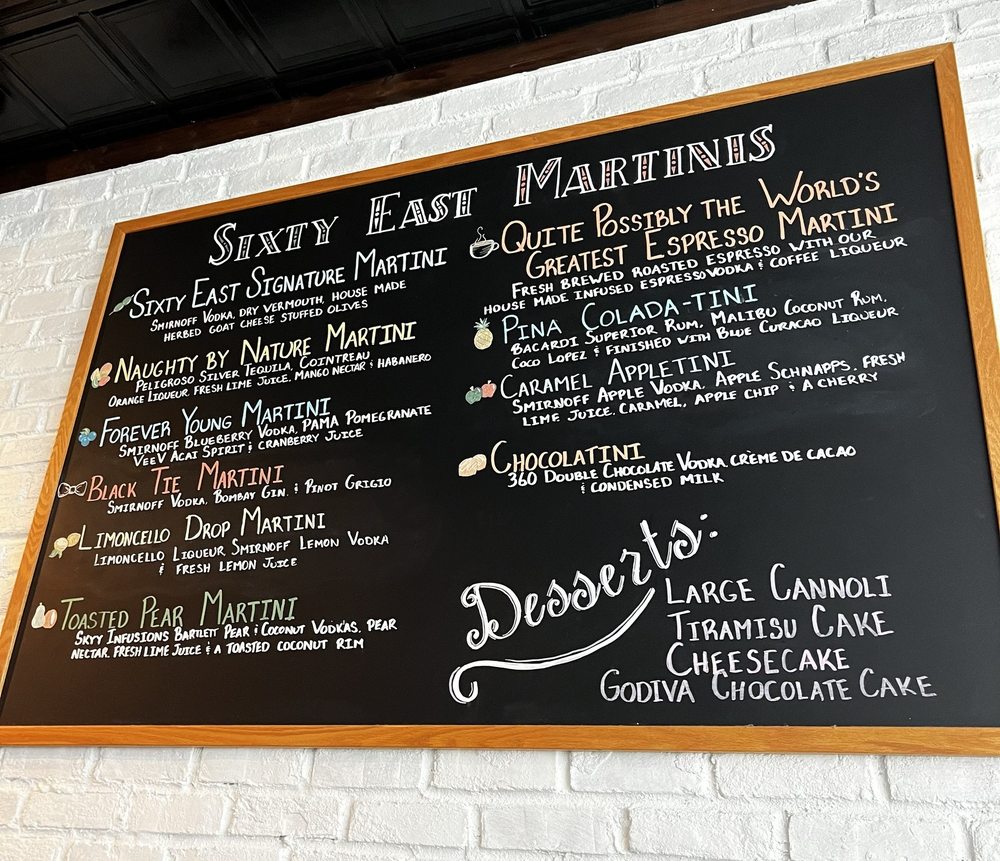 Sixty East Martinis
Sixty East Signature Martini
Smirnoff Vodka, Dry Vermouth, House Made
Herbed Goat Cheese Stuffed Olives
Naughty by Nature Martini
Peligroso Silver Tequila, Cointreau
Orange Liqueur, Fresh Lime Juice, Mango Nectar & Habanero
Forever Young Martini
Smirnoff Blueberry Vodka, PAMA Pomegranate
VeeV Acai Spirit & Cranberry Juice
Black Tie Martini
Smirnoff Vodka, Bombay Gin, & Pinot Grigio
Limoncello Drop Martini
Limoncello Liqueur, Smirnoff Lemon Vodka
& Fresh Lemon Juice
Toasted Pear Martini
Skyy Infusions Bartlett Pear & Coconut Vodkas, Pear
Nectar, Fresh Lime Juice & a Toasted Coconut Rim
Quite Possibly the World's
Greatest Espresso Martini
Fresh Brewed Roasted Espresso with our
House Made Infused Espresso Vodka & Coffee Liqueur
Pina Colada-tini
Bacardi Superior Rum, Malibu Coconut Rum,
Coco Lopez & Finished with Blue Curacao Liqueur
Caramel Appletini
Smirnoff Apple Vodka, Apple Schnapps, Fresh
Lime Juice, Caramel, Apple Chip & a Cherry
Chocolatini
360 Double Chocolate Vodka, Creme de Cacao
& Condensed Milk
Desserts:
Large Cannoli
Tiramisu Cake
Cheesecake
Godiva Chocolate Cake